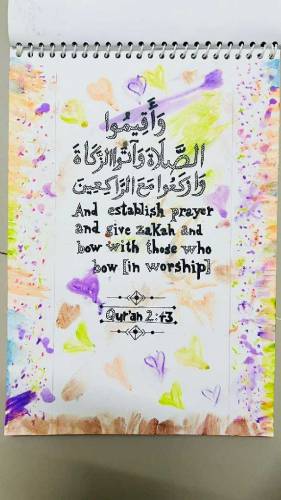 وَأَقِيمُوا
الصَّلَاةَ وَآتُوا الزَّكَاةَ
وَارْكَعُوا مَعَ الرَّاكِعِينَ
And establish prayer
and give zakah and
bow with those who
bow [in worship]
Qur'an 2:43